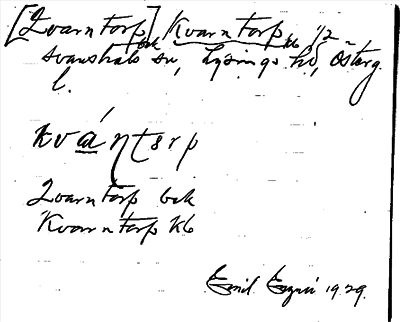 [Qvarntorp] bek Kvarntorp kb 1/2
Svanshals sn, Lysings hd, Österg.
l.
kvá̱ɳtɛrp
Qvarntorp bek
Kvarntorp kb
Emil 1929.